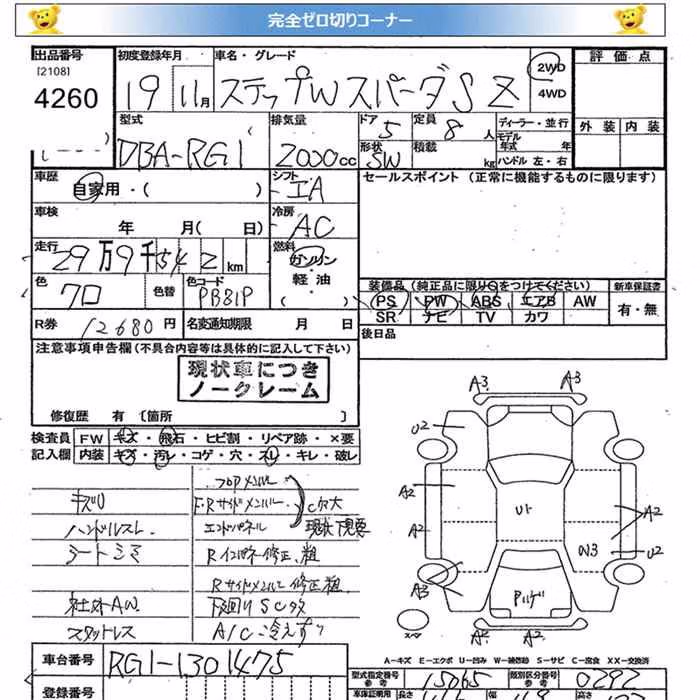 完全ゼロ切りコーナー
出品番号
[2108]
4260
初度登録年月
19 11月
車名・グレード
ステップWスパーダS Z
2WD
4WD
評価点
外装 内装
型式
DBA-RG1
排気量
2000cc
ドア
5
定員
8人
形状
SW
積載
kg
ディーラー・並行
モデル
年式 年
ハンドル 左・右
車歴
自家用・( )
シフト
IA
セールスポイント (正常に機能するものに限ります)
車検
年 月(日)
冷房
AC
走行
29万9千542km
燃料
ガソリン
軽油
( )
色
クロ
色替
色コード
PB81P
装備品(純正品に限り○をつけてください)
PS PW ABS エアB AW
SR ナビ TV カワ
新車保証書
有・無
R券
12680円
名変通知期限 月 日
後日品
注意事項申告欄(不具合内容等は具体的に記入して下さい)
現状車につき
ノークレーム
修復歴 有 [箇所 ]
検査員
記入欄
FW キズ・飛石・ヒビ割・リペア跡・×要
内装 キズ・汚レ・コゲ・穴・スレ・キレ・破レ
キズU
ハンドルスレ
シートシミ
社外AW
スタットレス
フロアメンバー
F・Rサイドメンバー
エンドパネル
C穴大
現状下見要
Rインパネ修正、粗
Rサイドメンバー修正粗
下廻りSC大
A/C冷えず
A3
A3
U2
A2
A2
U1
A2
W3
U2
A3
A2
A2
A-キズ E-エクボ U-凹み W-補修跡 S-サビ C-腐食 XX-交換済
車台番号
RG1-1301475
登録番号
型式指定番号
参考
15065
類別区分番号
参考
0292
車庫証明用
長さ
幅
高さ